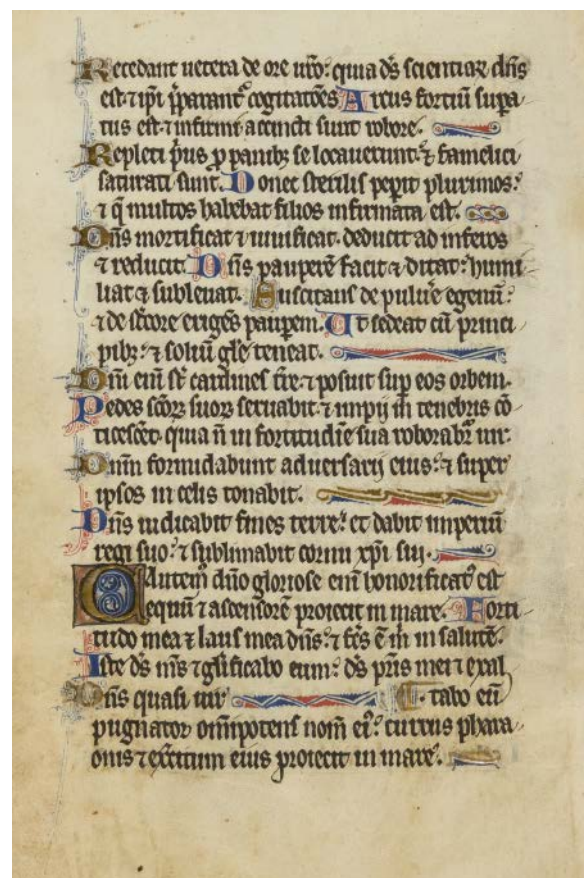 Recedant uetera de ore uro: quia ds scientiar dns
est ⁊ ipi pparant cogitatoes Arcus fortiu supa
tus est ⁊ infirmi accincti sunt robore.
Repleti pus p panibz se locauerunt: ⁊ famelici
saturati sunt. Donec sterilis peperit plurimos:
⁊ q multos habebat filios infirmata est.
Dns mortificat ⁊ uiuificat. deducit ad inferos
⁊ reducit. Dns paupere facit ⁊ ditat: humi
liat ⁊ subleuat. Suscitans de puluie egenu:
⁊ de stcore eriges paupem. Ut sedeat cu princi
pibz: ⁊ soliu gle teneat.
Dni eni st cardines tre. ⁊ posuit sup eos orbem.
Pedes scorz suorz seruabit. ⁊ impij in tenebris co
ticescet. quia n in fortitudie sua roborabr uir.
Dnm formidabunt aduersarij eius: ⁊ super
ipsos in celis tonabit.
Dns iudicabit fines terre: et dabit imperiu
regi suo: ⁊ sublimabit cornu xpi sui.
Cautem dno gloriose eni honorificat est
equu ⁊ ascensore proiecit in mare. Forti
tudo mea ⁊ laus mea dns: ⁊ fcs e m in salute.
Iste ds ms ⁊ glificabo eum: ds pris mei ⁊ exal
Dns quasi uir tabo eu
pugnator omipotens nom ei: currus phara
onis ⁊ exercitum eius proiecit in mare.